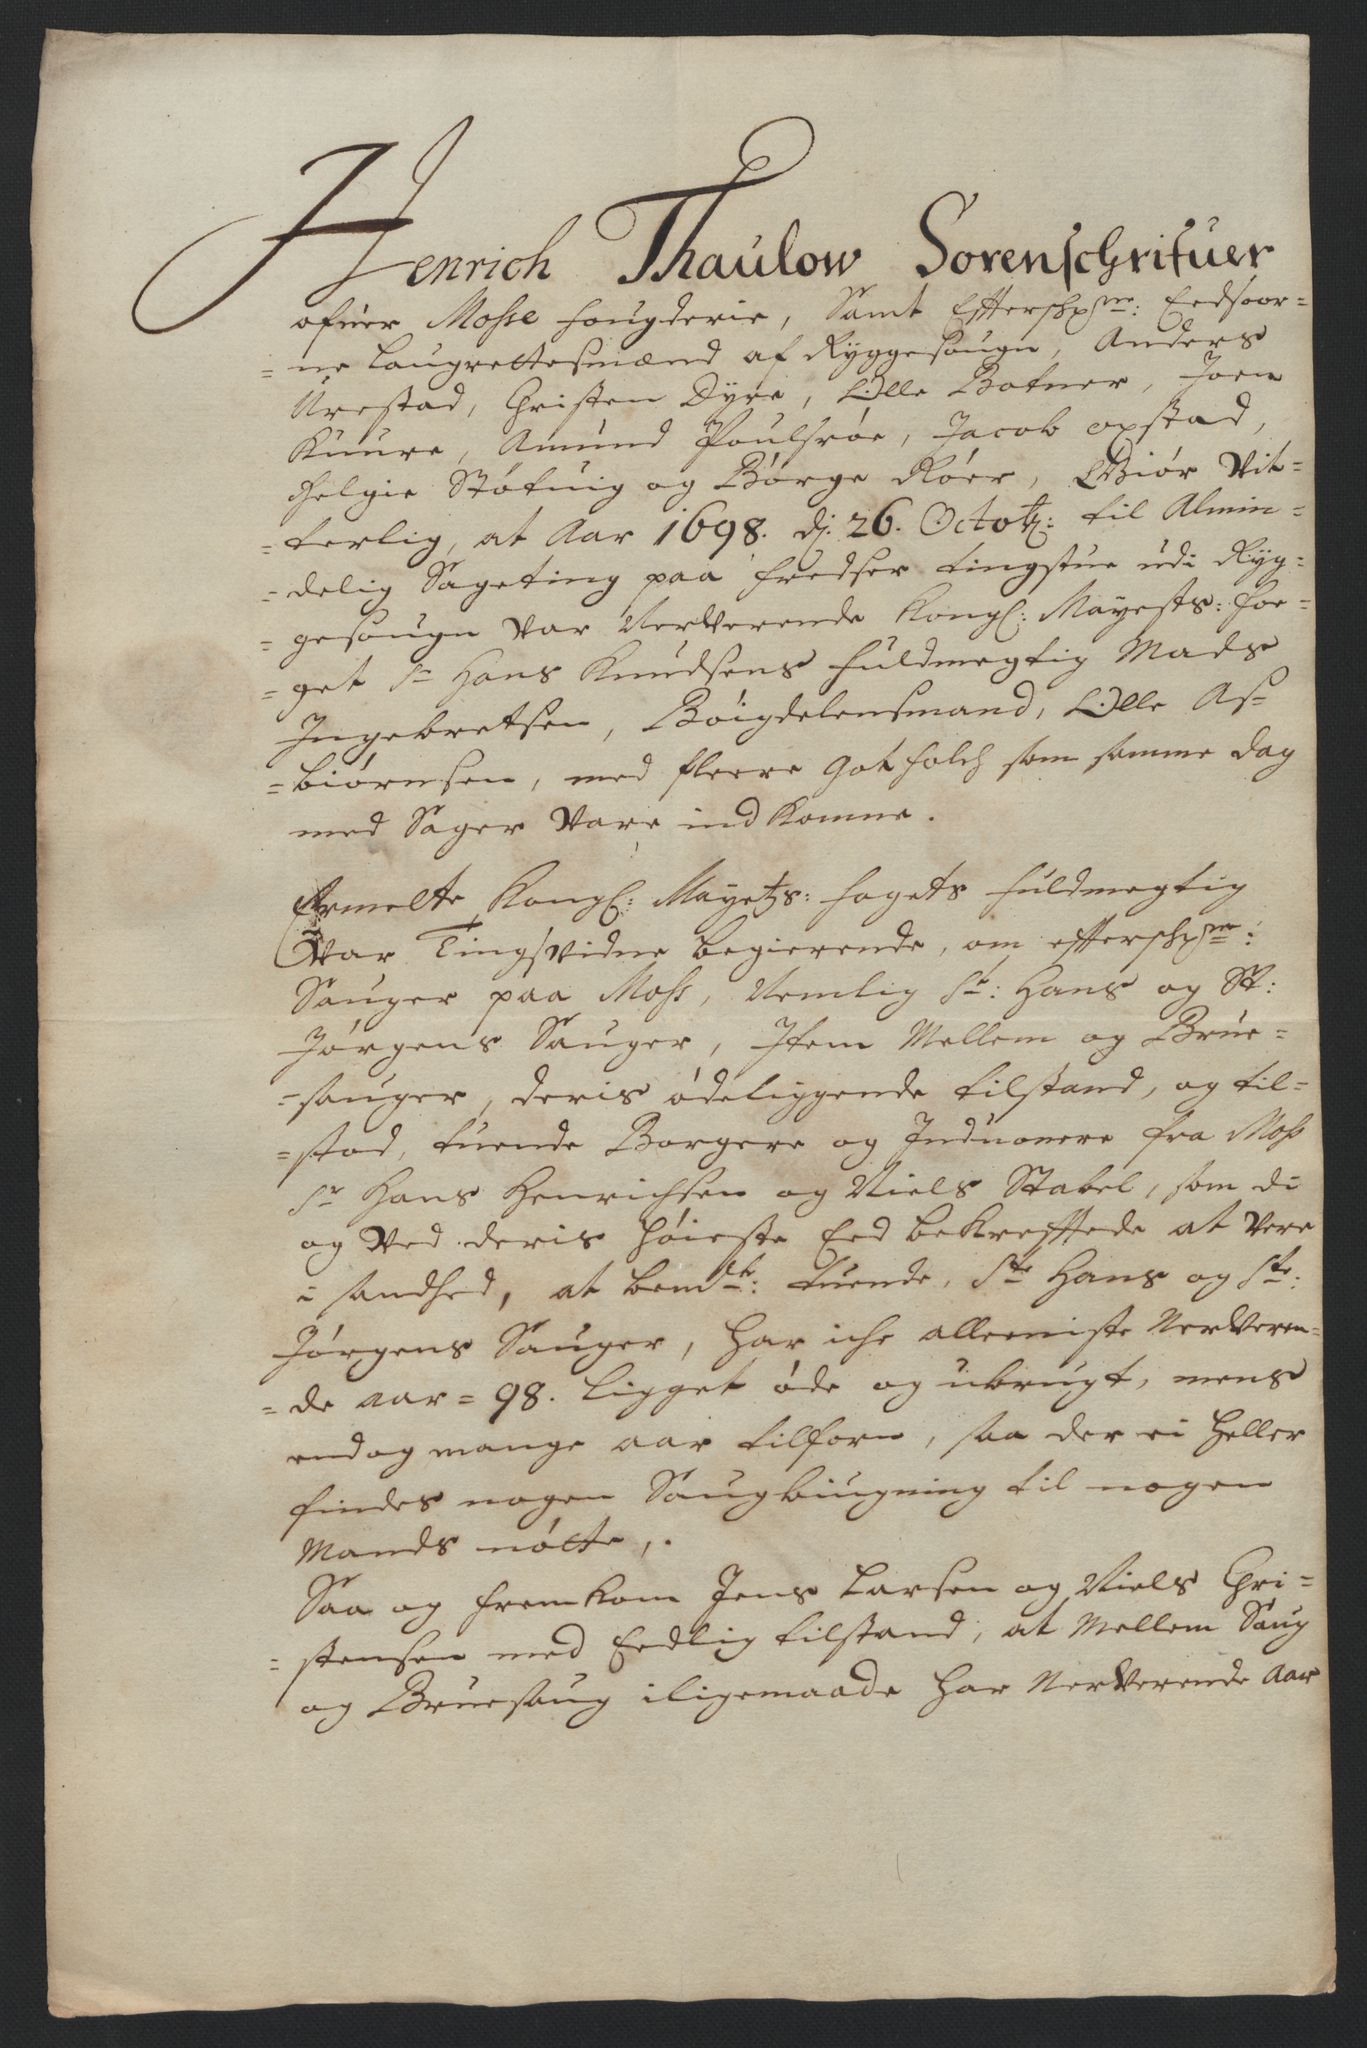 Henrich Thaulow Sorenschrifuer
ofuer Mosse fougderie, Samt Effterschr: Eedsoor-
-ne Laugrettesmænd af Ryggesougn, Anders
Urestad, Christen Dyre, Olle Botner, Joen
Kuure, Amund Poulsröe, Jacob oxstad,
Helgie Støtuig og Børge Röer, Giör Vit-
-terlig, at Aar 1698. dj. 26. Octobr: til Almin-
-delig Sageting paa fredser tingstue udi Ryg-
-gesougn var Nerverende Kongl: Mayests: foe-
-get Sr Hans Knudsens fuldmegtig Mads
Ingebretsen, Böigdelensmand, Olle As-
-biörnsen, med fleere got folch som samme dag
med Sager vare ind komne.
Ermelte Kongl: Mayetzs: fogets fuldmegtig
Var Tingsvidne begierende, om effterschr:
Sauger paa Moss, Nemlig St: Hans og St:
Jörgens Sauger, Item Mellem og Brue-
-sauger, deris ödeliggende tilstand, og til-
-stod, tuende Borgere og Induonere fra Moss
Sr Hans Henrichsen og Niels Stabel, som di
og ved deris höieste Eed bekrefftede at vere
i sandhed, at bemte: tuende, Ste Hans og Ste:
Jörgens Sauger, har iche alleeniste Nerveren-
-de aar = 98. ligget öde og ubrugt, mens
endog mange aar tilforn, saa der ei heller
findes nogen Saugbiugning til nogen
Mands nötte,.
Saa og fremkom Jens Larsen og Niels Chri-
-stensen med Eedlig tilstand, at Mellem Saug
og Bruesaug iligemaade har Nerverende Aar